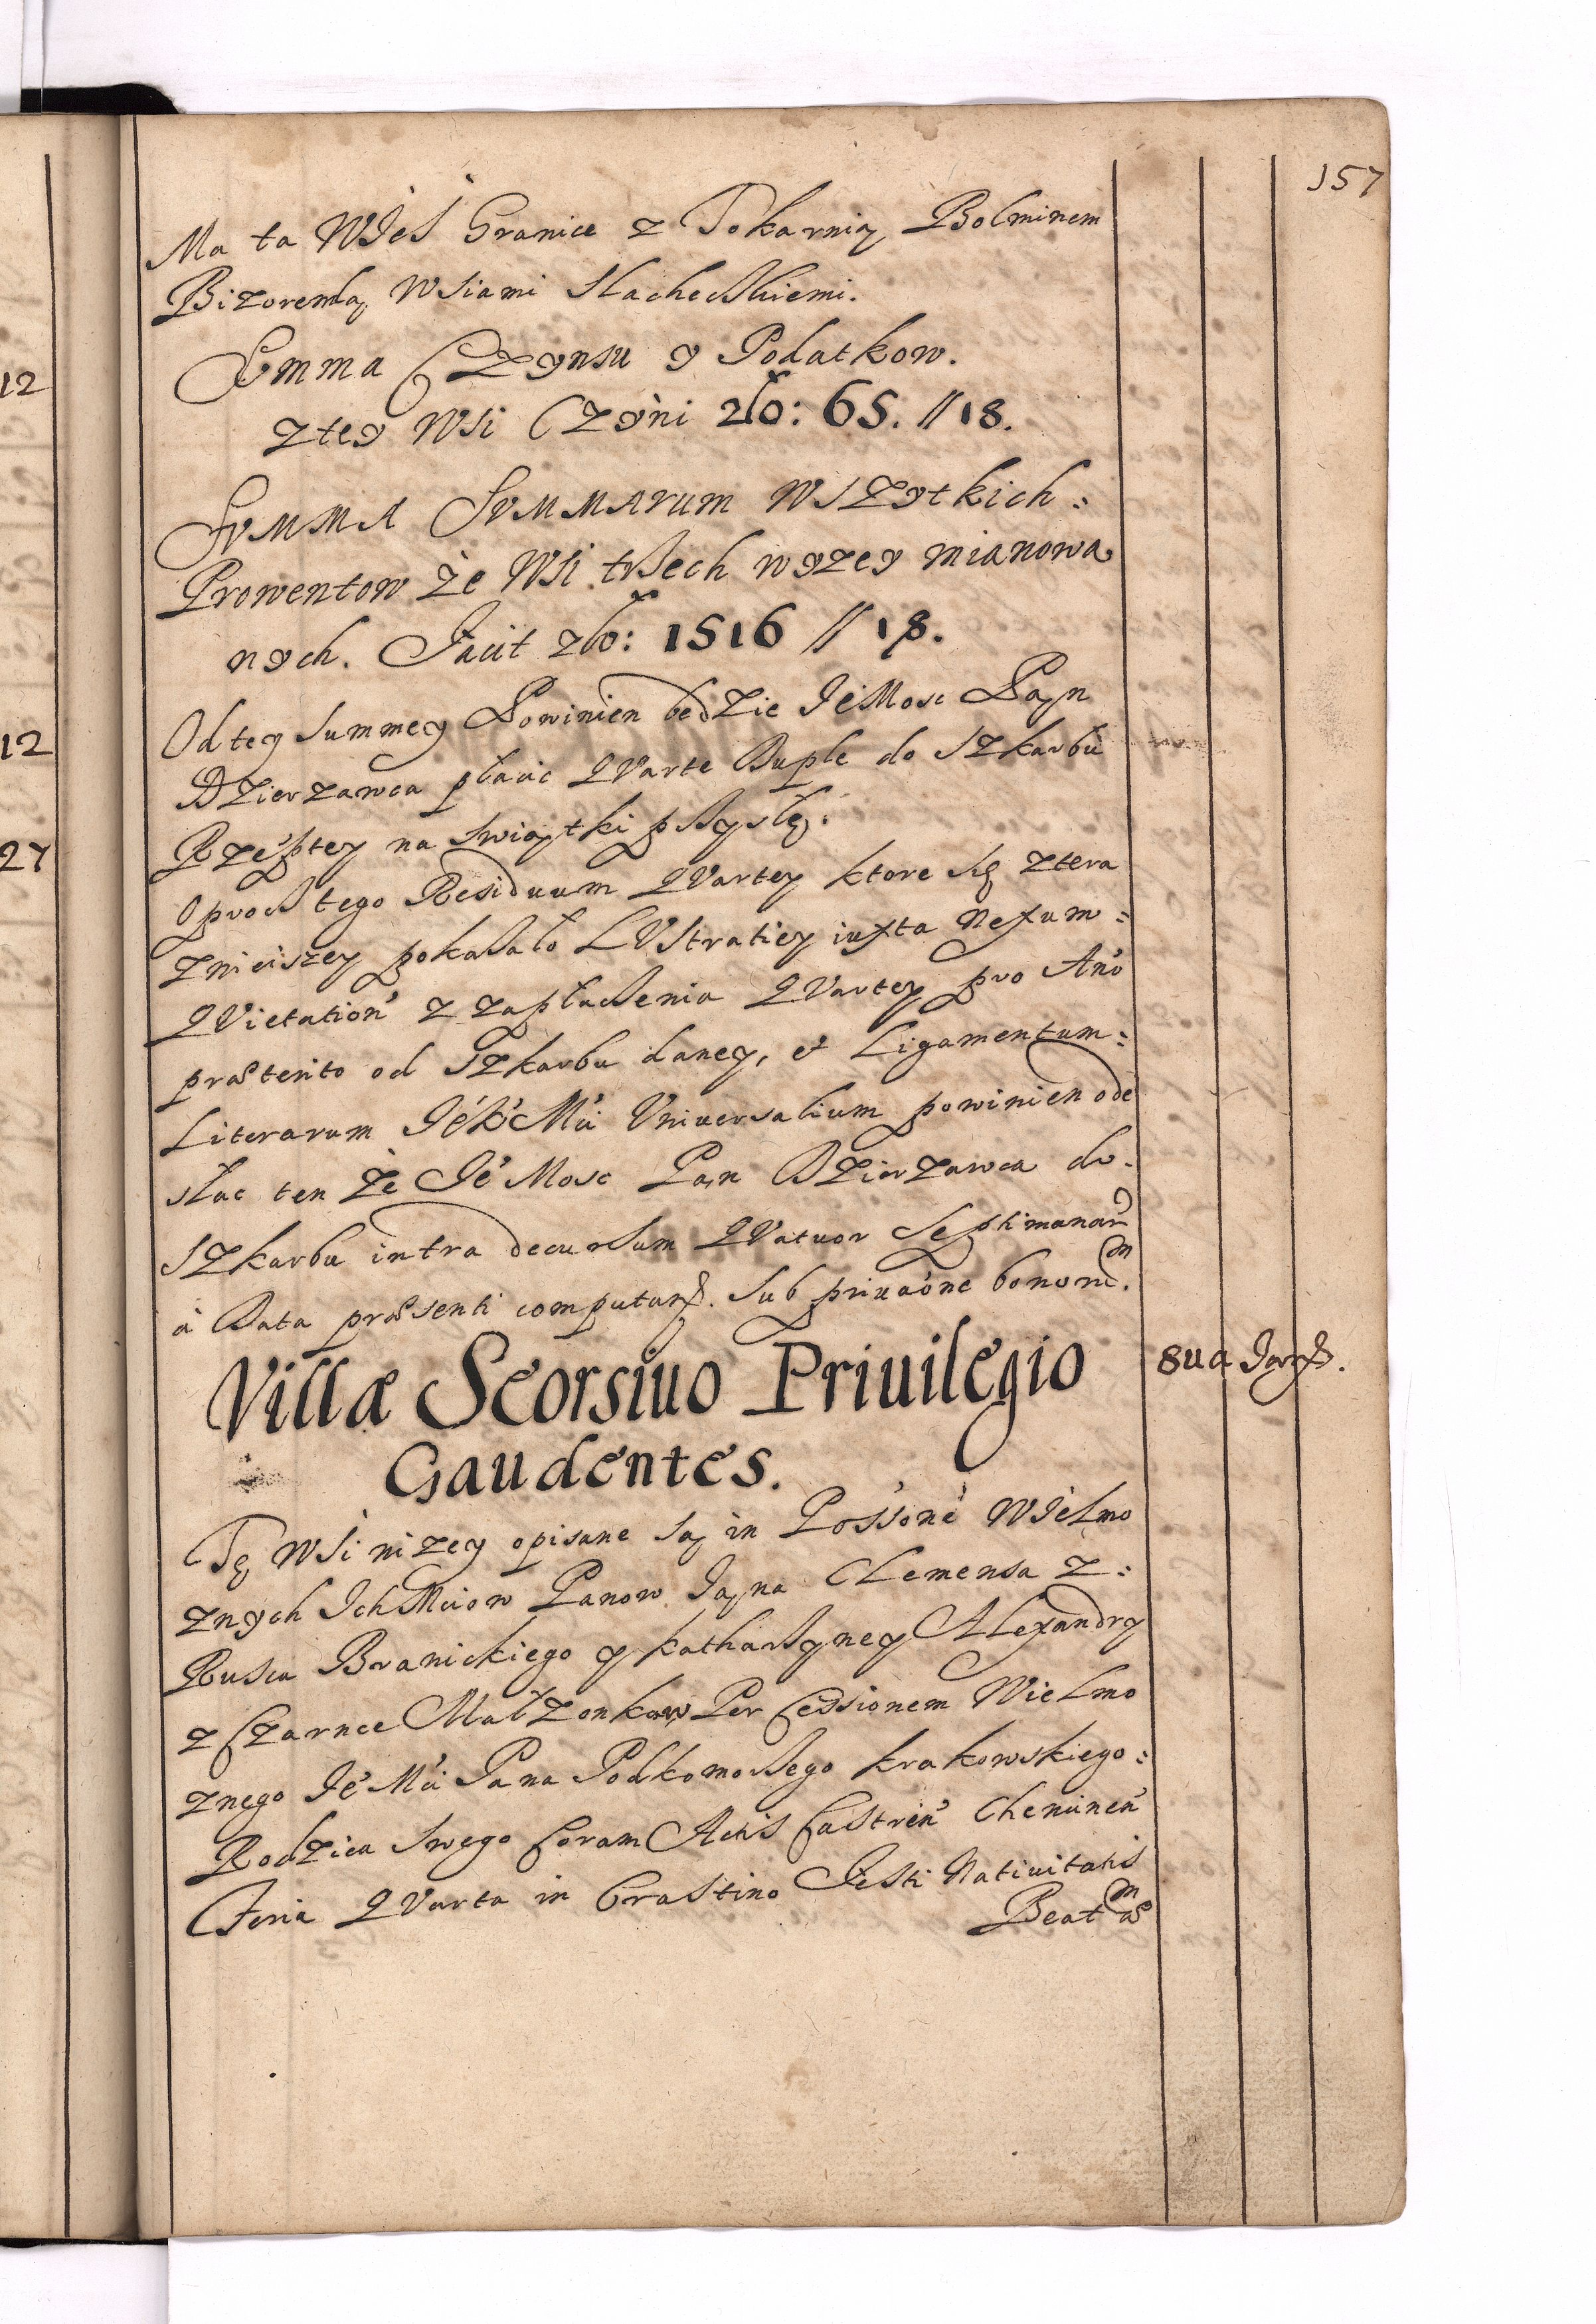 157
Ma ta WIeś Granice z Tokarnią Bolminem
Bizorendą Wsiami slacheckiemi.
Summa Czynsu y Podatkow.
z tey Wsi Czyni zło: 65. // 18.
Summa Summarum wszytkich:
Prowentow że Wsi trzech wyzey mianowa
nych. Facit zło: 1516 // 18.
Od tey summey Powinien bedzie JéMosc Pąn
Dzierzawca płacic QVarte Duple do Szkarbu
Rzépltey na swiątki przyszłę.
Oprocz tego Residuum QVartey ktore się z tera
znieiszey pokazało LVstratiey iuxta nexum:
QVietation z zapłaczenia QVartey pro Ano
præterito od Szkarbu daney, et Ligamentum:
Literarum JéKMci Vniuersalium powinien ode
słac ten że JéMosc Pąn Dzierzawca do.
Szkarbu intra decursum QVatuor Septimanar
à Data præsenti computan. sub priuaone bonorum.
Villæ Seorsiuo Priuilegio
sua Jars.
Gaudentes.
Tę Wsi nizey opisane są in Possone WIelmo
znych IchMciow Panow Jąna Clemensa z:
Rusca Branickiego y Katharzyney Alexandry
z Czarnce Małzonkow Per Cessionem Wielmo
znego JéMci Pana Podkomorzego Krakowskiego:
Rodzica swego Coram Actis Castren Chencinen
Feria QVarta in Crastino Festi Natiuitatis
Beatmæ
12
12
27